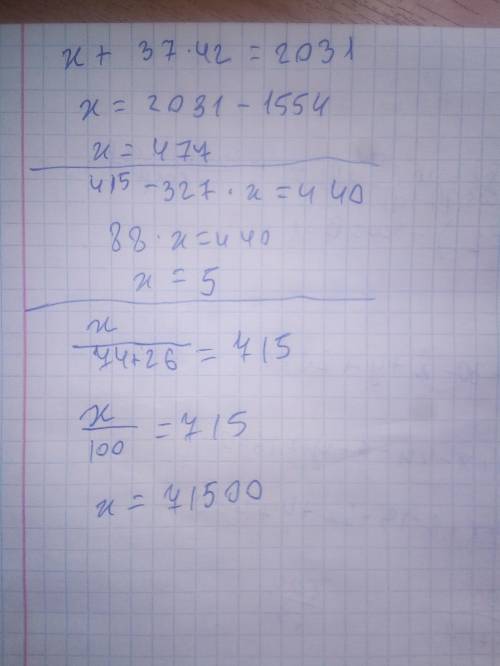 x + 37 · 42 = 2031
x = 2031 - 1554
x = 477
415 - 327 · x = 440
88 · x = 440
x = 5
x
74+26 = 715
x
100 = 715
x = 71500